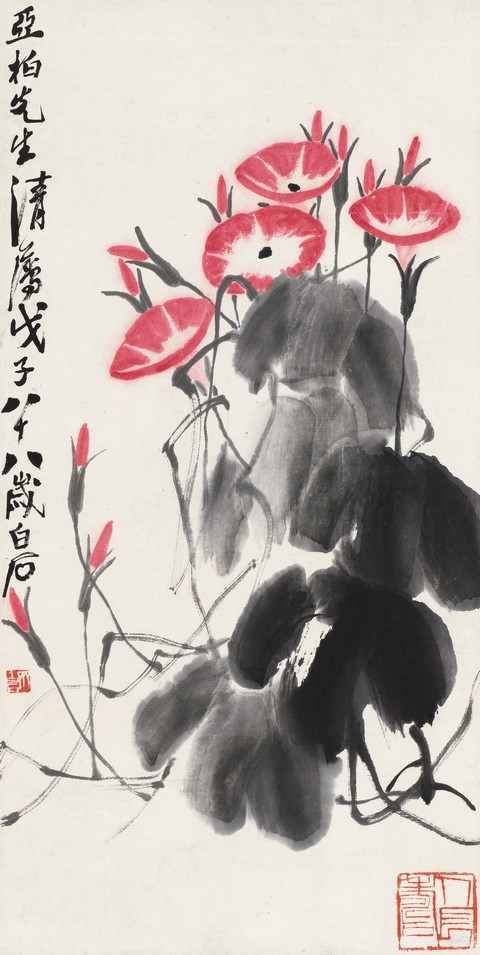 亞柏先生清屬戊子八十八歲白石
人長壽